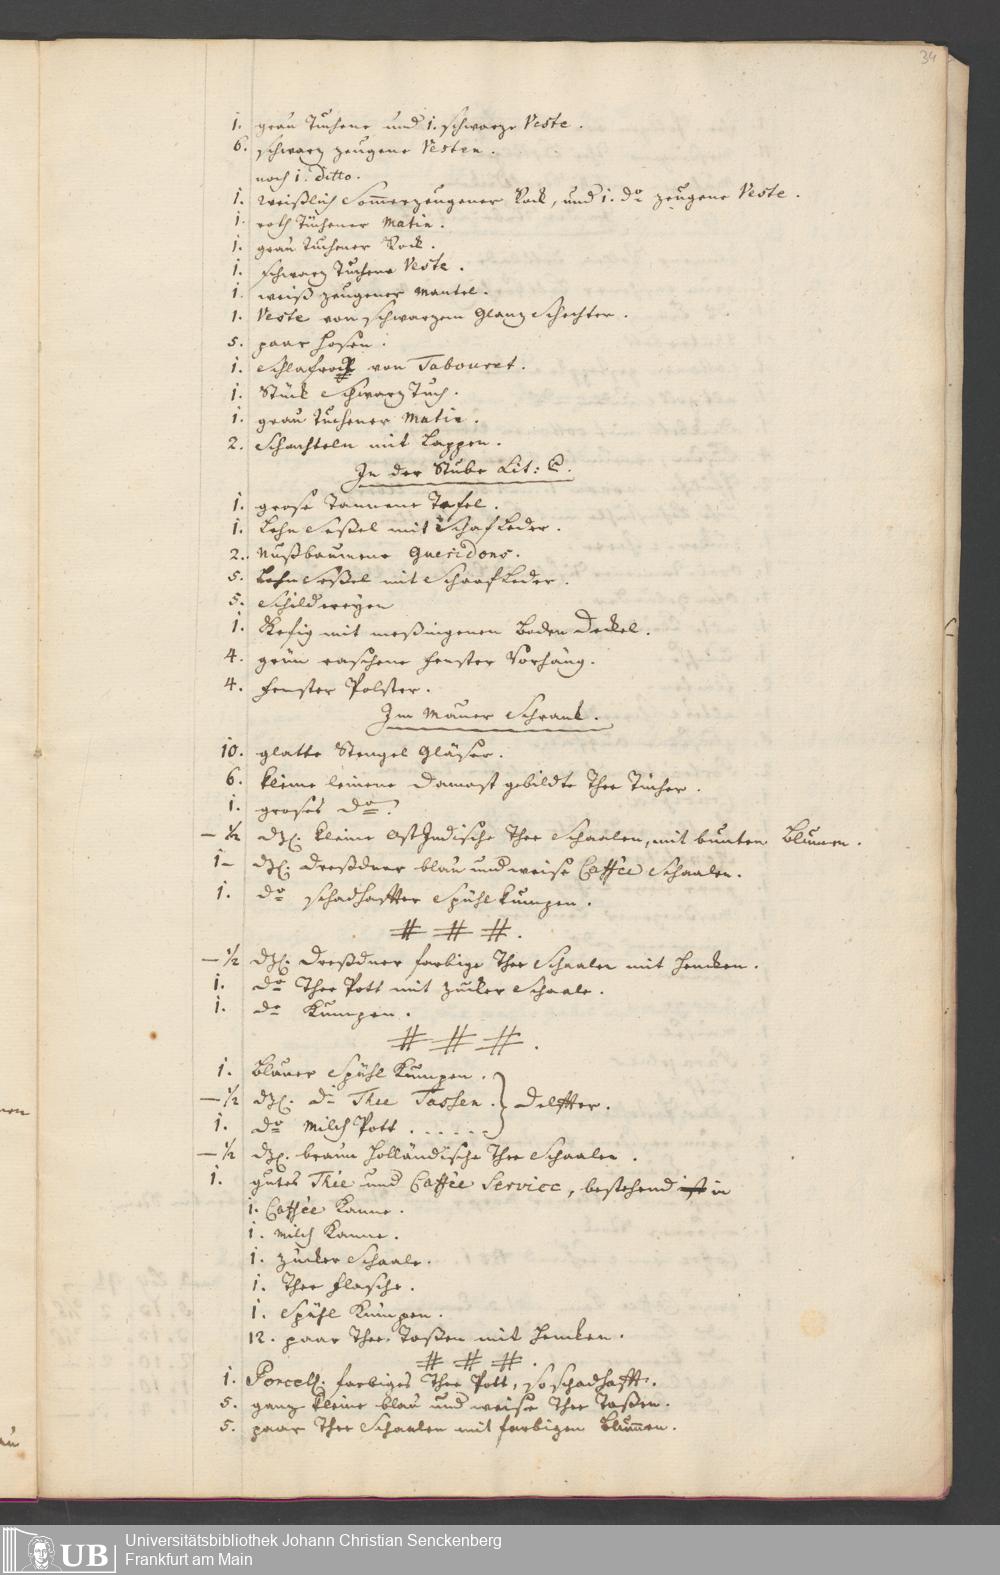 34
1. grau Tuchene und 1. schwarze Veste.
6. schwarz zeugene Vesten.
noch 1. ditto.
1. weißlich Som̄erzeugener Rock, und 1. do zeugene Veste.
1. roth Tuchener Matin.
1. grau Tuchener Rock.
1. schwarz Tuchene Veste.
1. weiß zeugener Mantel.
1. Veste von schwarzem Glanz Schechter.
5. paar Hosen.
1. Schlafrock von Tabouret.
1. Stück Schwarz Tuch.
1. grau Tuchener Matin.
2. Schachteln mit Lappen.
In der Stube Lit: C.
1. grose Tannene Tafel.
1. Lehn Seßel mit Schaf Leder.
2. Nußbaumene Gueridons.
5. Lehn Seßel mit Schaaf Leder.
5. Schildereyen
1. Kefig mit meßingenen Boden Deckel.
4. grün raschene Fenster Vorhäng.
4. Fenster Polster.
Im Mauer Schrank.
10. glatte Stengel Gläser.
6. kleine leinene Damast gebildte Thee Tücher.
1. groses do.
– ½ dz. kleine Ost Indische Thee Schaalen, mit bunten Blumen.
1– dz. Dreßdner blau und weise Caffée Schaalen.
1. do schadhaffter Spühl Kumpen.
# # #.
– ½ dz. Dreßdner farbige Thee Schaalen mit Hencken.
1. do Thee Pott mit Zucker Schaale.
1. do Kumpen.
# # #.
1. Blauer Spühl Kumpen.
– ½ dz. do Thee Tassen. } Delffter.
1. do Milch Pott . . . . .
– ½ dz. braun Holländische Thee Schaalen.
1. gutes Thée und Caffée Service, bestehend ist in
1. Caffée Kanne.
1. Milch Kanne.
1. Zucker Schaale.
1. Thee Flasche.
1. Spühl Kumpen.
12. paar Thee Taßen mit Hencken.
# # #.
1. Porcell. farbiges Thee Pott, so schadhafft.
5. ganz kleine blau und weise Thee Taßen.
5. paar Thee Schaalen mit farbigen Blum̄en.
UB Universitätsbibliothek Johann Christian Senckenberg
Frankfurt am Main